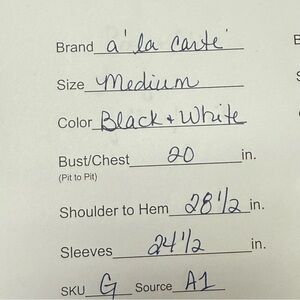 Brand a' la carte'
Size Medium
Color Black + White
Bust/Chest 20 in.
(Pit to Pit)
Shoulder to Hem 28 1/2 in.
Sleeves 24 1/2 in.
SKU G Source A1